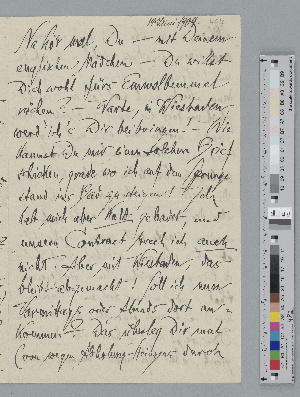 Na hör mal, Du — mit Deinem
englischen Mädchen — Du willst
Dich wohl fürs
rächen? — Warte, in Wiesbaden
werd' ich's Dir beibringen. — Wie
kannst Du mir einen solchen Brief
schicken, grade wo ich auf dem Sprunge
stand ins Bad zu steigen! Ich
hab mich aber kalt gebadet, und
unsern Contract brech ich auch
nicht. Aber mit Wiesbaden, das
bleibt abgemacht! Soll ich nun
Vormittags oder Abends dort an-
kommen? Das überleg Dir mal
(von wegen Abholung durch